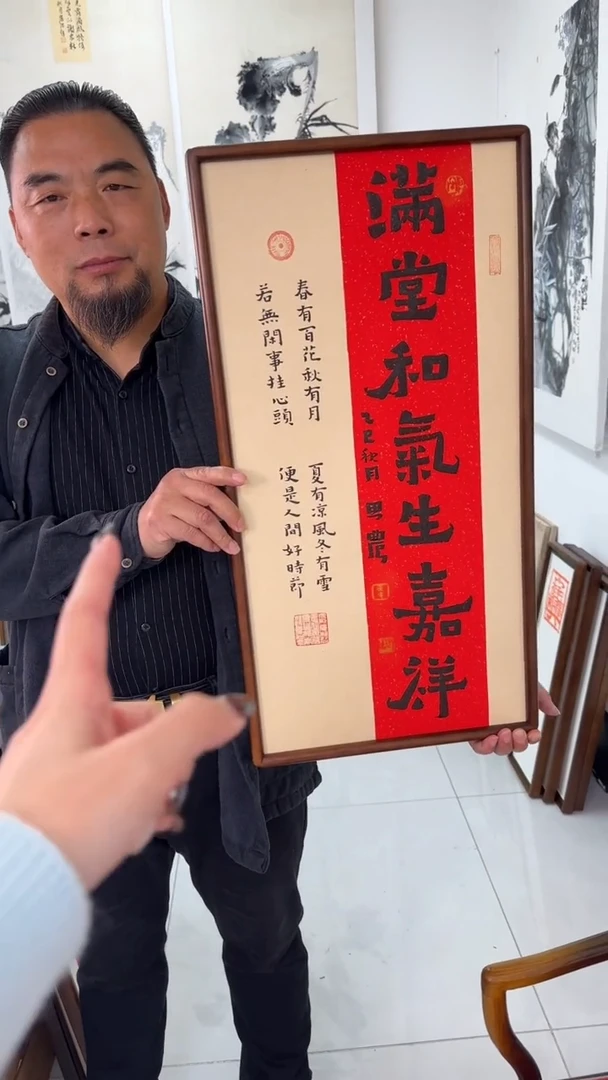 滿堂和氣生嘉祥
乙巳秋月
春有百花秋有月
夏有涼風冬有雪
若無閑事挂心頭
便是人間好時節